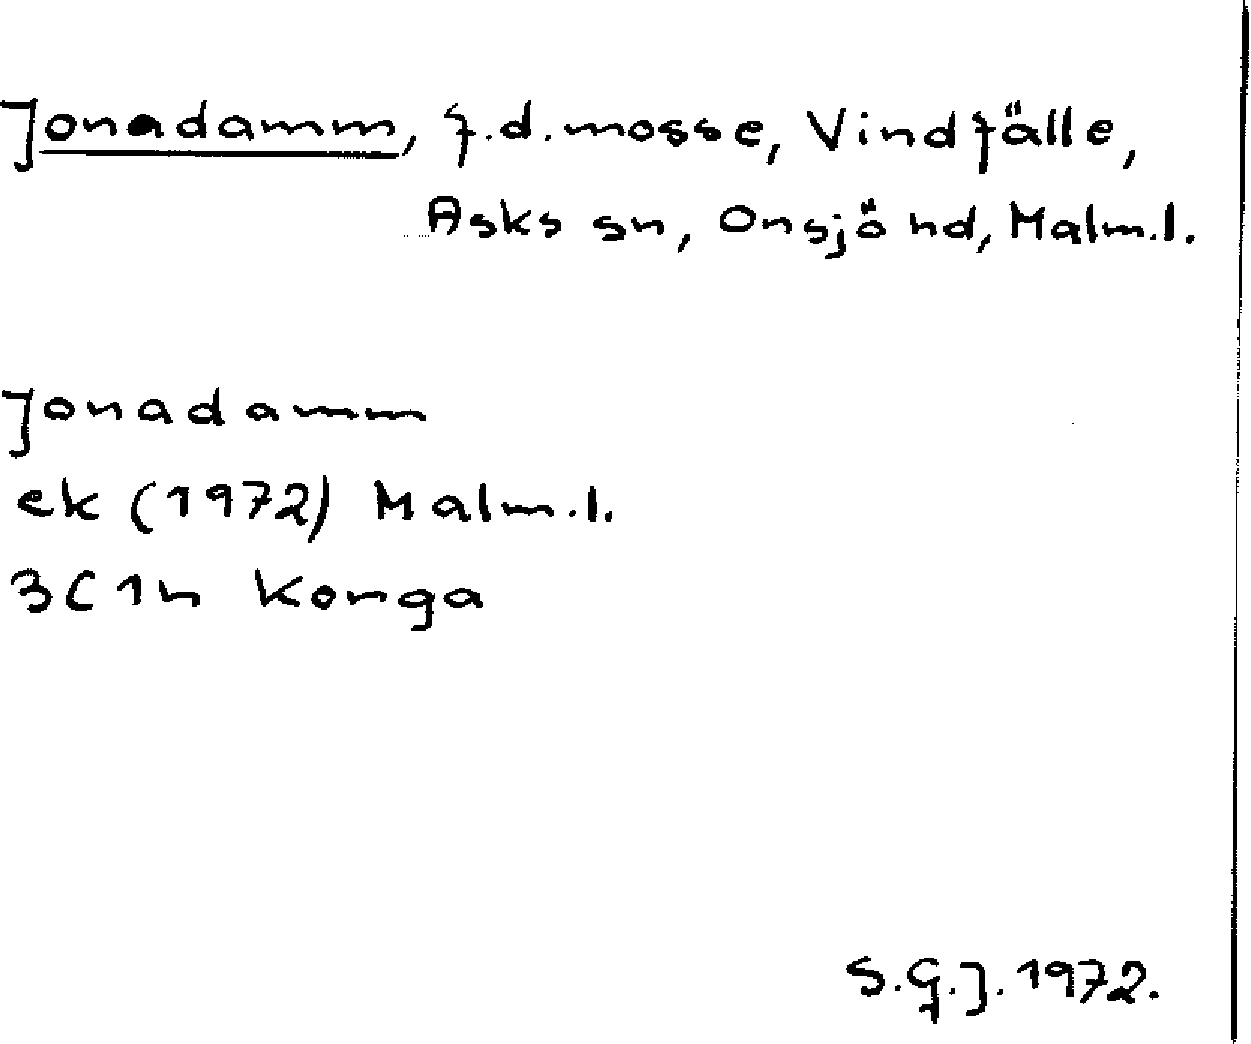 Jonadamm, f.d. mosse, Vindfälle,
Asks sn, Onsjö hd, Malm.l.
Jonadamm
ek (1972) Malm.l.
3C 1h Konga
S.G.J. 1972.